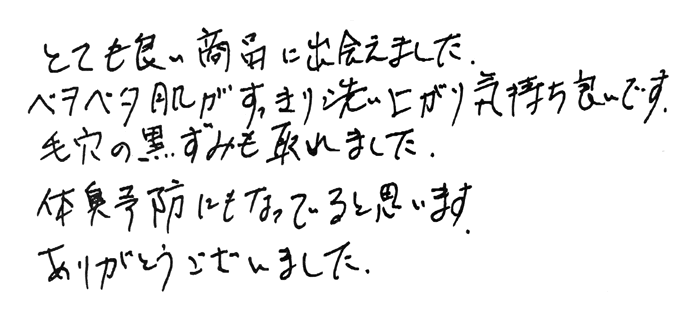 とても良い商品に出会えました.
ベタベタ肌がすっきり洗い上がり気持ち良いです.
毛穴の黒ずみも取れました.
体臭予防にもなっていると思います.
ありがとうございました.